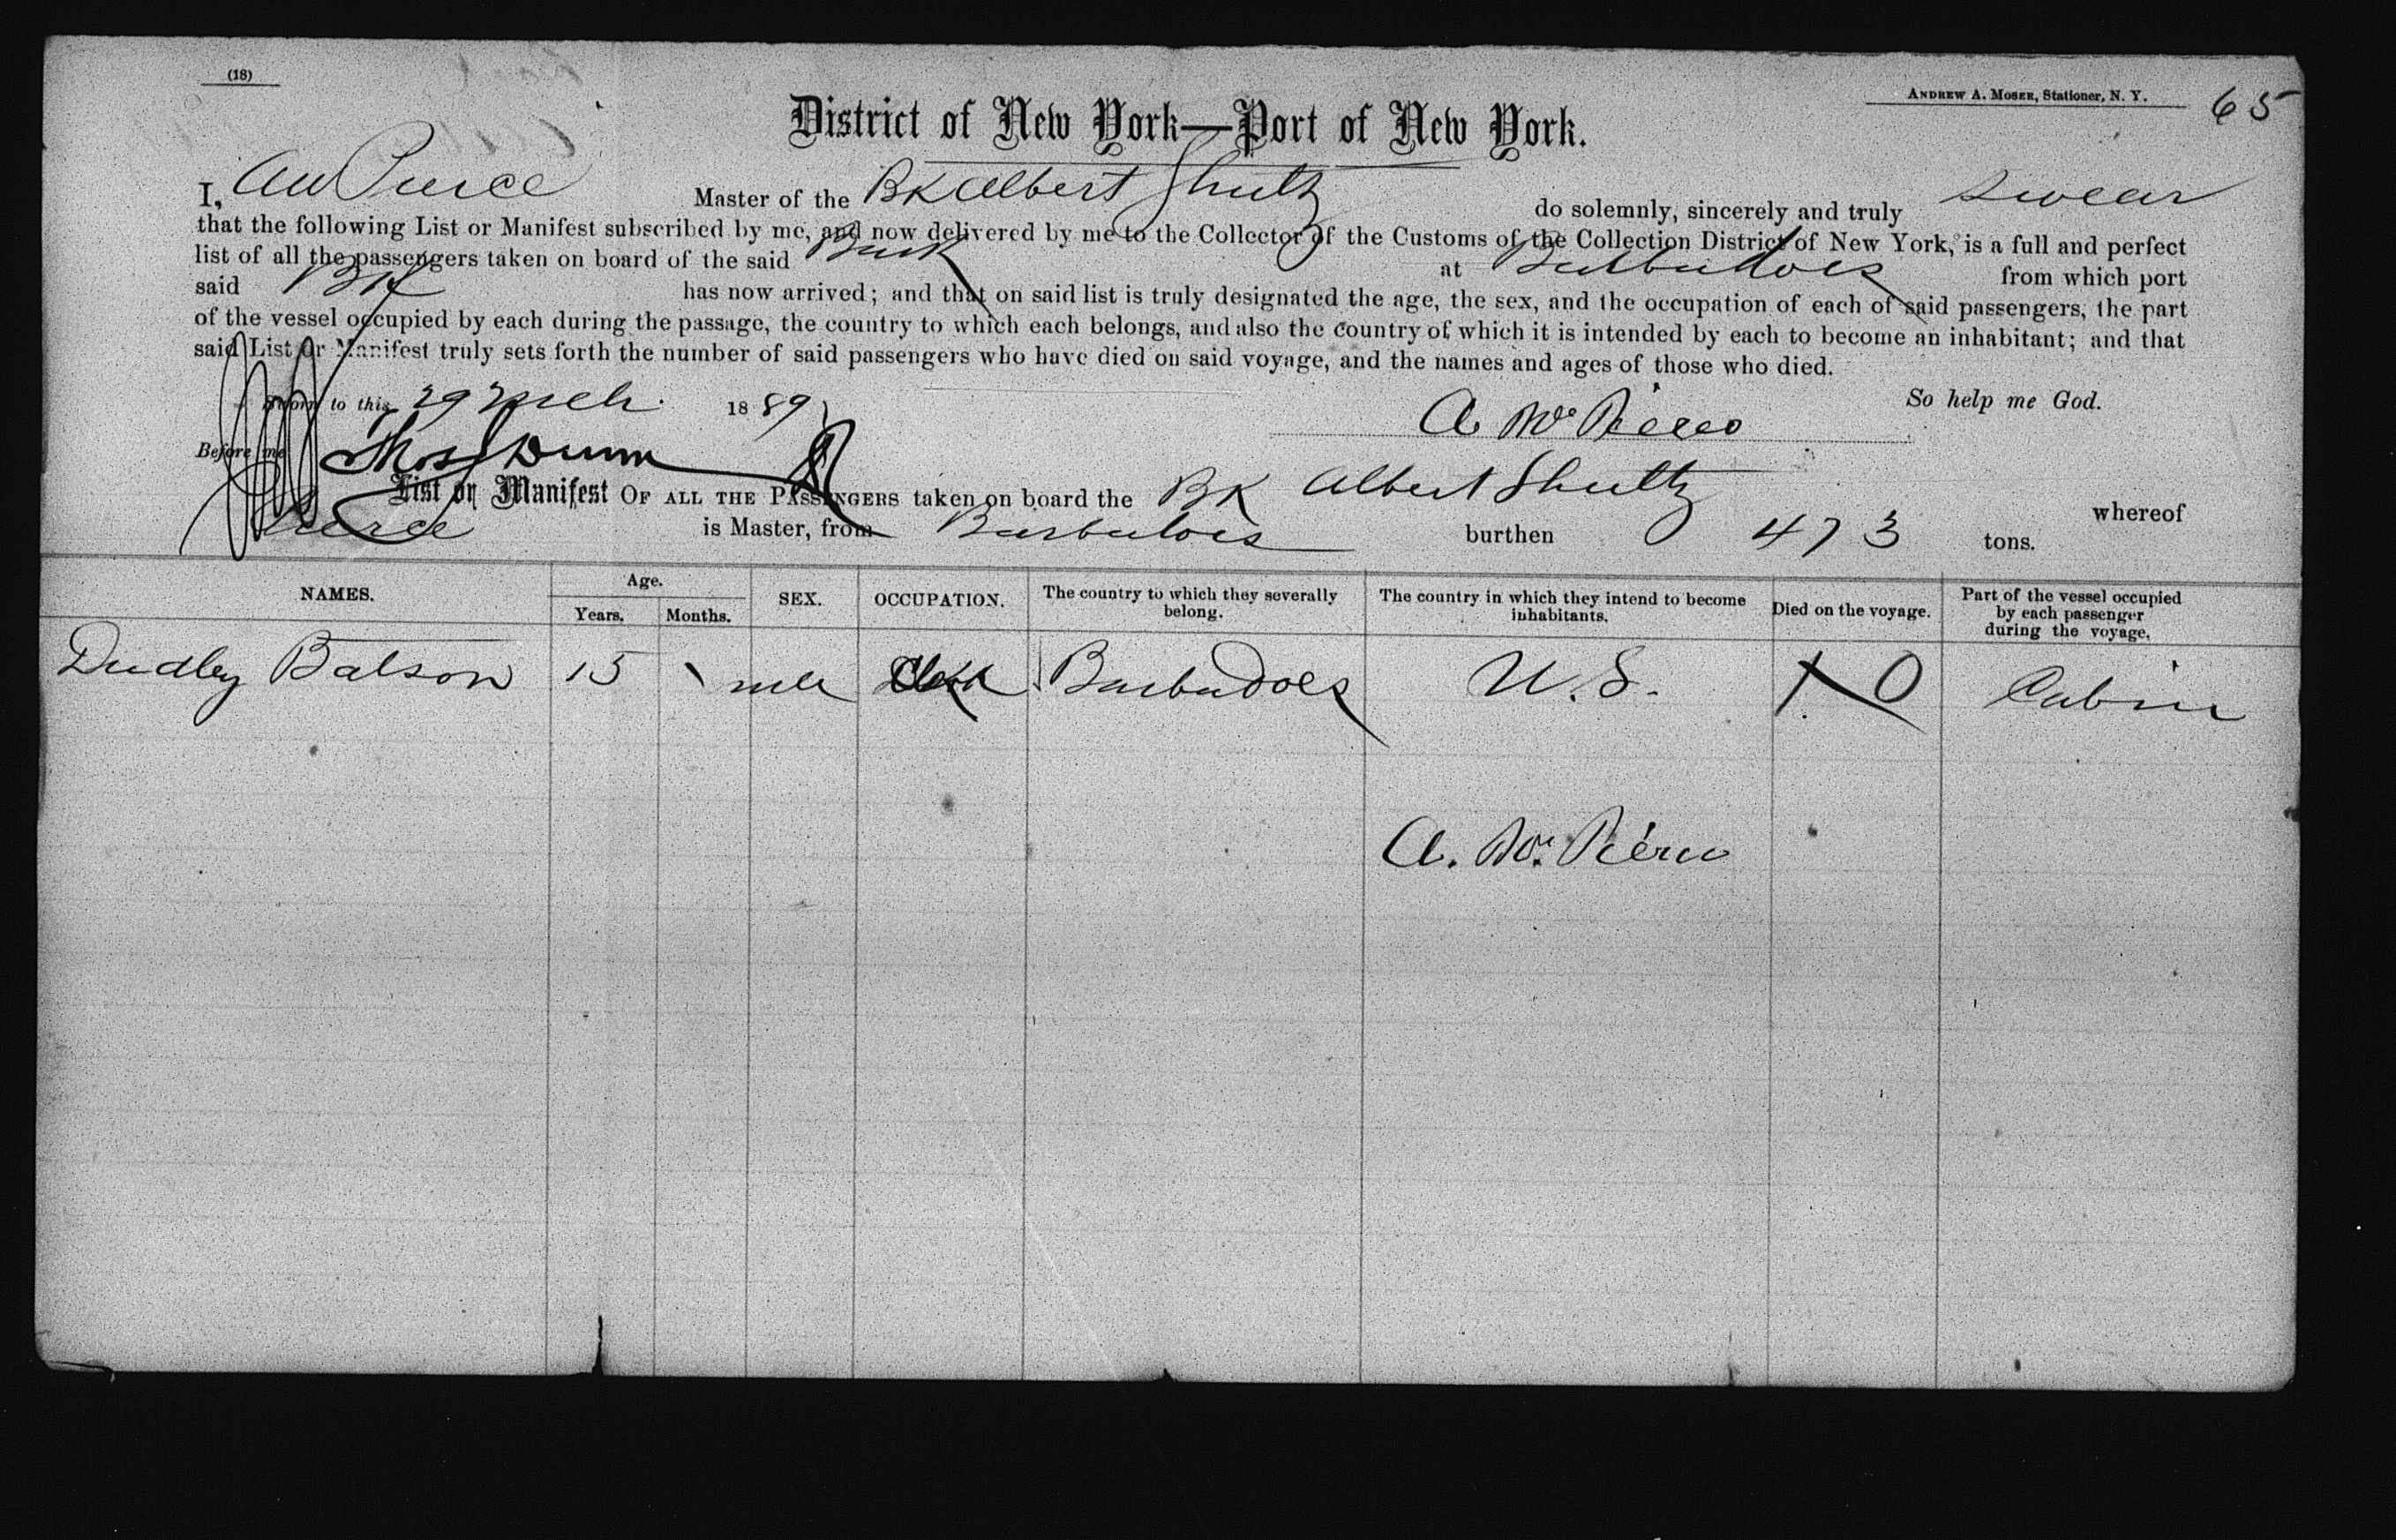 (18)
ANDREW A. MOSER, Stationer, N. Y. 65
District of New York—Port of New York.
I, AW Pierce Master of the BK Albert Shultz do solemnly, sincerely and truly swear
that the following List or Manifest subscribed by me, and now delivered by me to the Collector of the Customs of the Collection District of New York, is a full and perfect
list of all the passengers taken on board of the said Bark at Barbadoes from which port
said BK has now arrived; and that on said list is truly designated the age, the sex, and the occupation of each of said passengers, the part
of the vessel occupied by each during the passage, the country to which each belongs, and also the country of which it is intended by each to become an inhabitant; and that
said List or Manifest truly sets forth the number of said passengers who have died on said voyage, and the names and ages of those who died.
So help me God.
Sworn to this 29 Mch. 1889
A W Pierce
Before me Thos Dunn
List or Manifest OF ALL THE PASSENGERS taken on board the BK Albert Shultz whereof
Pierce is Master, from Barbadoes burthen 473 tons.
NAMES. Age. Years. Months. SEX. OCCUPATION. The country to which they severally belong. The country in which they intend to become inhabitants. Died on the voyage. Part of the vessel occupied by each passenger during the voyage.
Dudley Batson 15 Clerk Barbadoes U.S. Cabin
A. W. Pierce